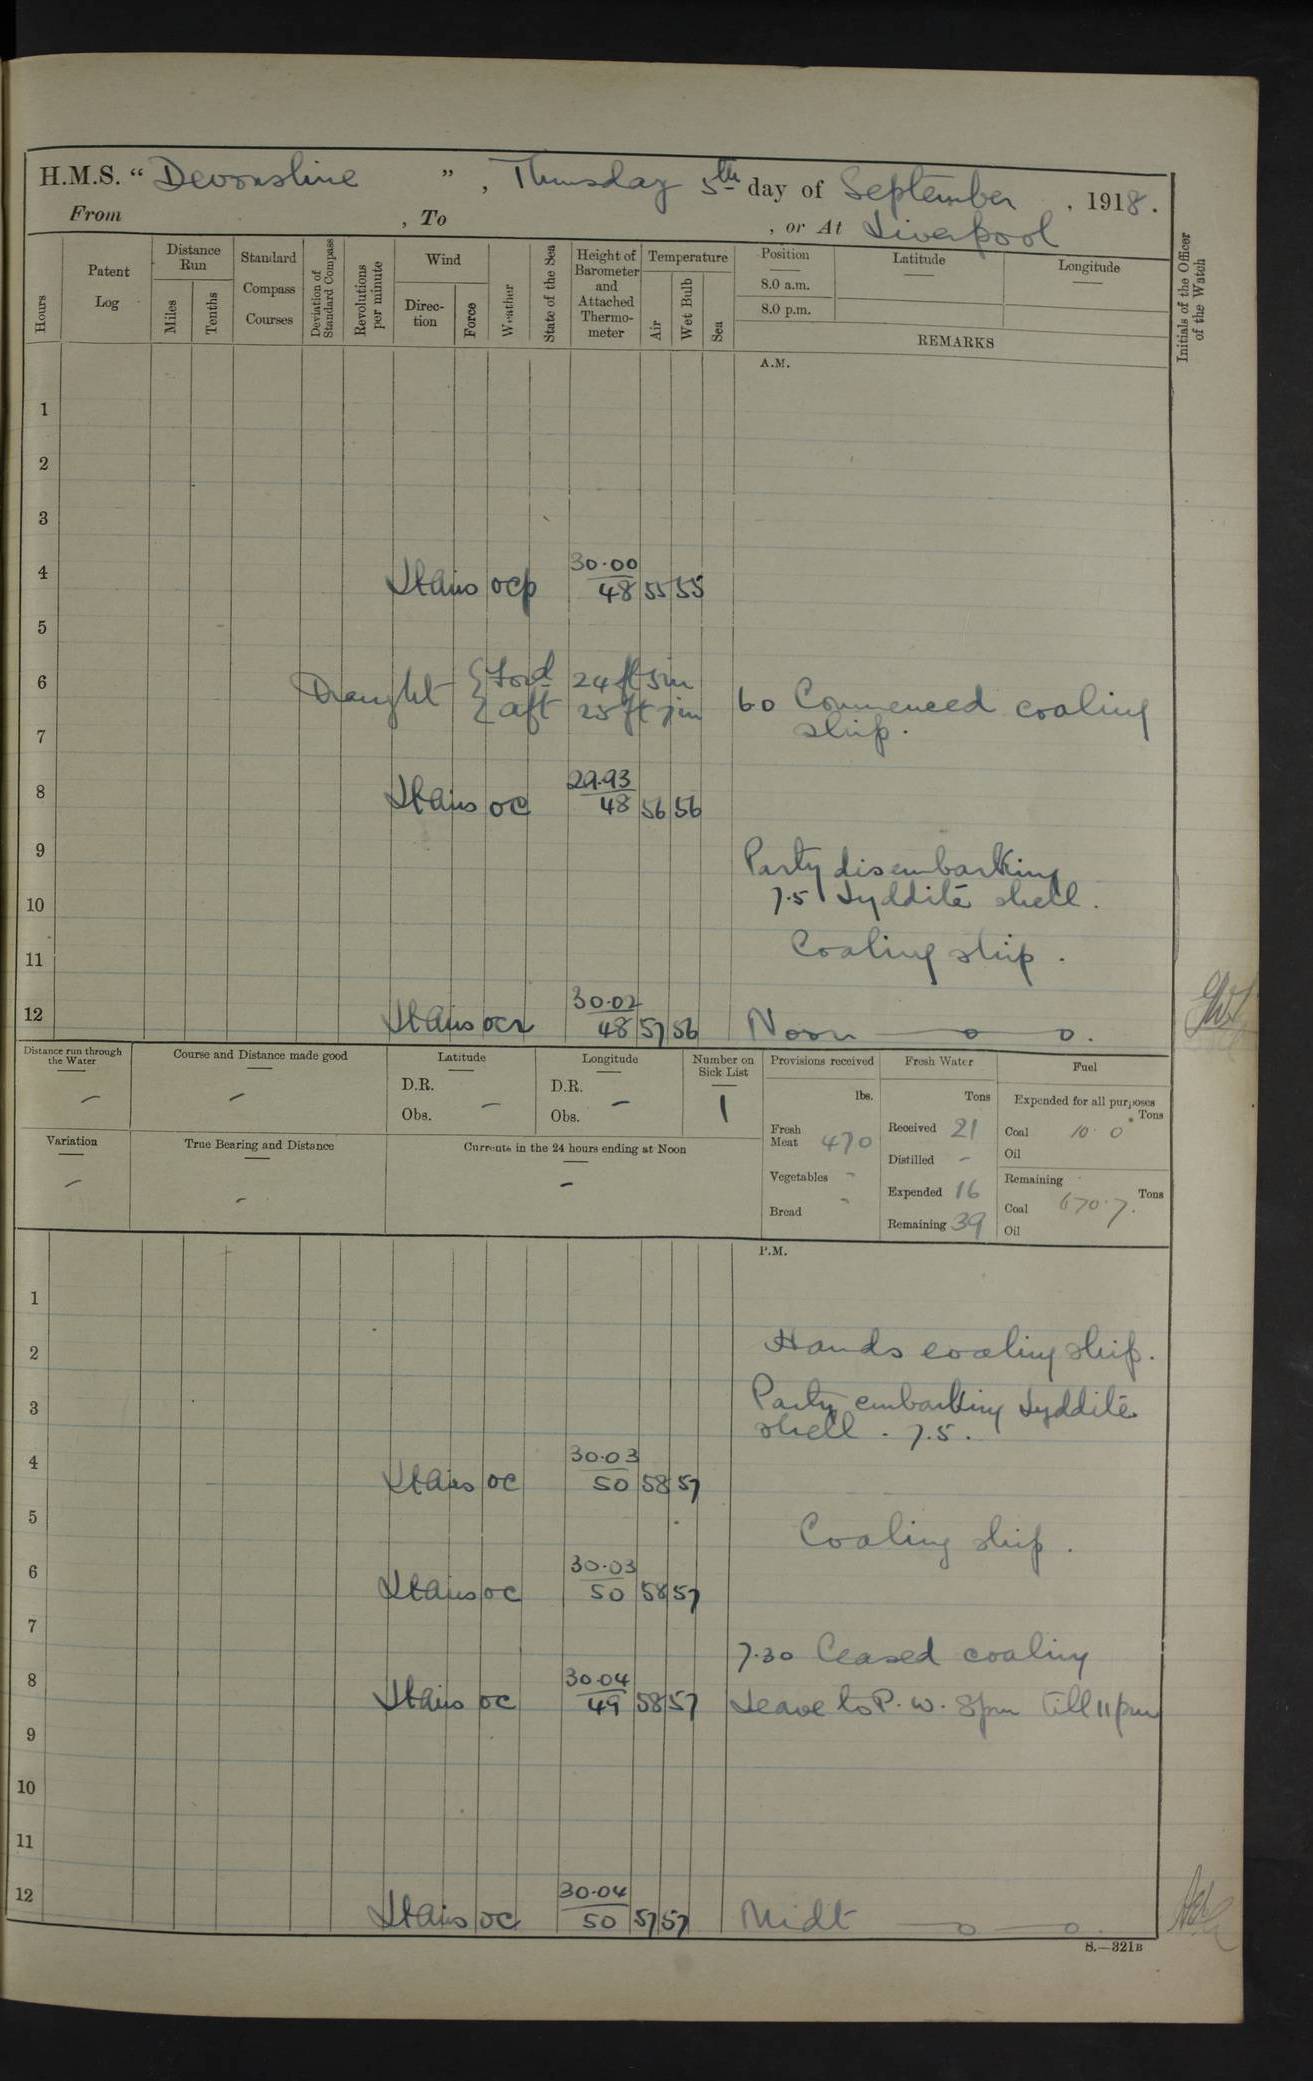 H.M.S. “ Devonshire ” , Thursday 5th day of September , 1918.
From , To , or At Liverpool
Hours
Patent Log
Distance Run
Miles
Tenths
Standard Compass Courses
Deviation of Standard Compass
Revolutions per minute
Wind
Direction
Force
Weather
State of the Sea
Height of Barometer and Attached Thermometer
Temperature
Air
Wet Bulb
Sea
Position
8.0 a.m.
8.0 p.m.
Latitude
Longitude
REMARKS
Initials of the Officer of the Watch
A.M.
1
2
3
30.00
4 ocp 48 55 55
5
6 Draught { Ford 24 ft 5 in
{ aft 25 ft 7 in
6 0 Commenced coaling
ship.
7
29.93
8 oc 48 56 56
9
Party disembarking
7.5 Lyddite shell.
10
11 Coaling ship.
30.02
12 ocr 48 57 56 Noon — o — o.
Distance run through the Water
–
Course and Distance made good
–
Latitude
D.R.
Obs. –
Longitude
D.R.
Obs. –
Number on Sick List
1
Provisions received
lbs.
Fresh Meat 470
Vegetables -
Bread -
Fresh Water
Tons
Received 21
Distilled –
Expended 16
Remaining 39
Fuel
Expended for all purposes
Tons
Coal 10.0
Oil
Remaining
Tons
Coal 670.7.
Oil
Variation
–
True Bearing and Distance
–
Currents in the 24 hours ending at Noon
–
P.M.
1
2 Hands coaling ship.
3 Party embarking Lyddite
shell. 7.5.
30.03
4 oc 50 58 57
5 Coaling ship.
30.03
6 oc 50 58 57
7
7.30 Ceased coaling
30.04
8 oc 49 58 57 Leave to P.W. 8pm till 11pm
9
10
11
30.04
12 oc 50 57 57 Midt — o — o.
S.—321B